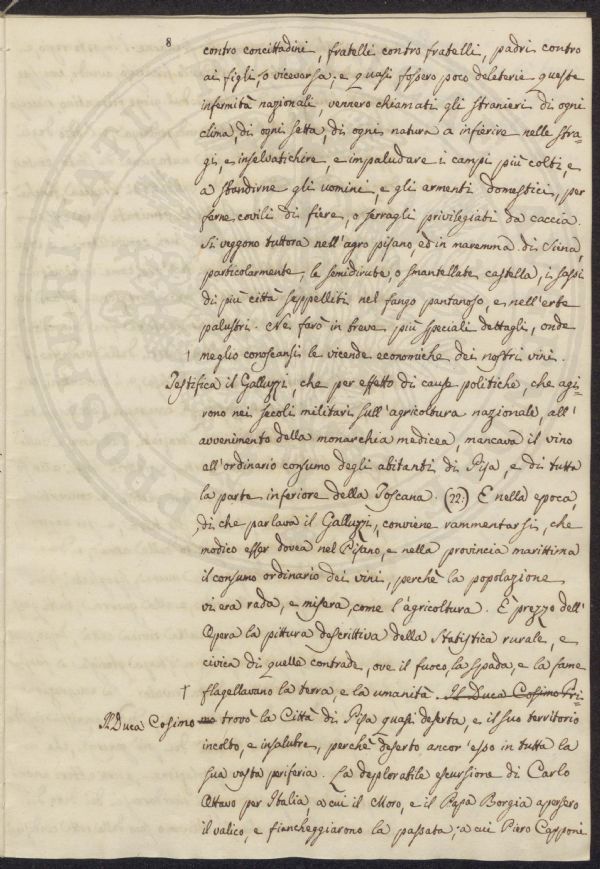 8
contro concittadini, fratelli contro fratelli, padri contro
ai figli, o viceversa; e quasi fossero poco deleterie queste
infermità nazionali, vennero chiamati gli stranieri di ogni
clima, di ogni setta, di ogni natura a infierire nelle stra-
gi, e inselvatichire, e impaludare i campi più colti, e
a sbandirne gli uomini, e gli armenti domestici, per
farne covili di fiere, o serragli privilegiati da caccia.
Si veggono tuttora nell'agro pisano, ed in maremma di Siena,
particolarmente le semidirute, o smantellate castella, i sassi
di più città seppelliti nel fango pantanoso, e nell'erbe
palustri. Ne farò in breve più speciali dettagli, onde
meglio conoscansi le vicende economiche dei nostri vini.
Testifica il Galluzzi, che per effetto di cause politiche, che agi-
rono nei secoli militari sull'agricoltura nazionale, all'
avvenimento della monarchia medicea, mancava il vino
all'ordinario consumo degli abitanti di Pisa, e di tutta
la parte inferiore della Toscana. (22.) E nella epoca,
di che parlava il Galluzzi, conviene rammentarsi, che
modico esser dovea nel Pisano, e nella provincia marittima
il consumo ordinario dei vini, perchè la popolazione
vi era rada, e misera, come l'agricoltura. È prezzo dell'
Opera la pittura descrittiva della Statistica rurale, e
civica di quelle contrade, ove il fuoco, la spada, e la fame
† flagellavano la terra, e la umanità. Il Duca Cosimo Pri-
Il Duca Cosimo mo trovò la Città di Pisa quasi deserta, e il suo territorio
incolto, e insalubre, perchè deserto ancor'esso in tutta la
sua vasta periferia. La deplorabile escursione di Carlo
Ottavo per Italia, a cui il Moro, e il Papa Borgia apersero
il valico, e fiancheggiarono la passata; a cui Piero Capponi